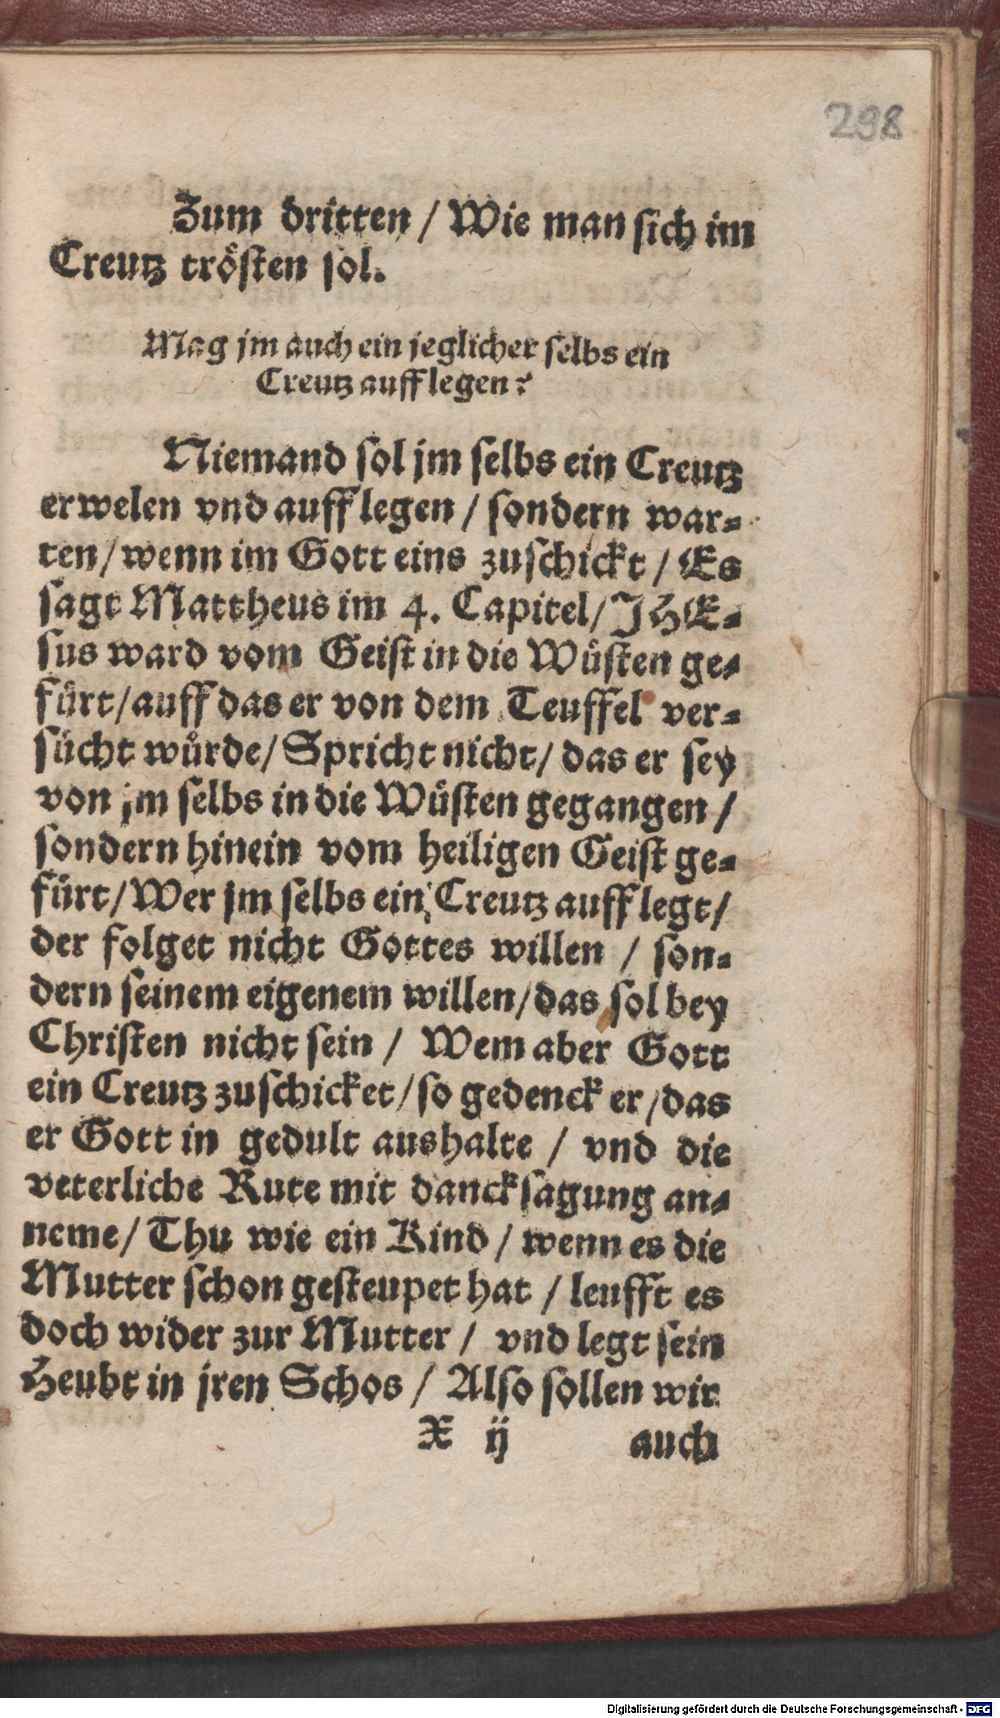 298
Zum dritten / Wie man sich im
Creutz trösten sol.
Mag jm auch ein jeglicher selbs ein
Creutz aufflegen?
Niemand sol jm selbs ein Creutz
erwelen vnd aufflegen / sondern war⸗
ten / wenn im Gott eins zuschickt / Es
sagt Mattheus im 4. Capitel / JHE⸗
sus ward vom Geist in die Wüsten ge⸗
fürt / auff das er von dem Teuffel ver⸗
sücht würde / Spricht nicht / das er sey
von jm selbs in die Wüsten gegangen /
sondern hinein vom heiligen Geist ge⸗
fürt / Wer jm selbs ein Creutz aufflegt /
der folget nicht Gottes willen / son⸗
dern seinem eigenem willen / das sol bey
Christen nicht sein / Wem aber Gott
ein Creutz zuschicket / so gedenck er / das
er Gott in gedult aushalte / vnd die
veterliche Rute mit dancksagung an⸗
neme / Thu wie ein Kind / wenn es die
Mutter schon gesteupet hat / leufft es
doch wider zur Mutter / vnd legt sein
Heubt in jren Schos / Also sollen wir
X ij auch
Digitalisierung gefördert durch die Deutsche Forschungsgemeinschaft - DFG